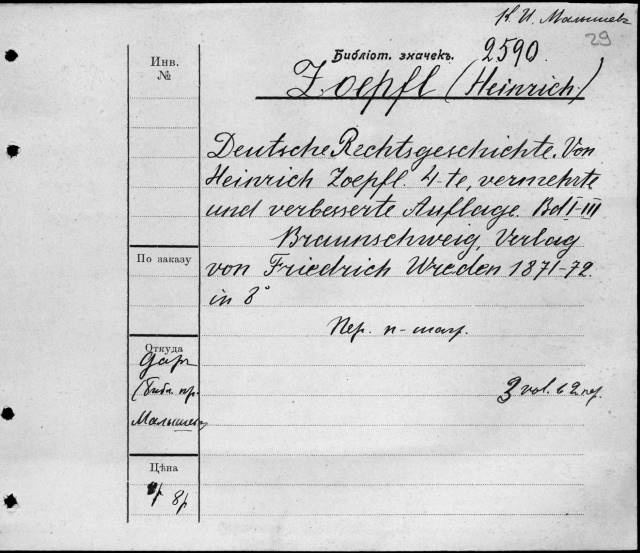 К. И. Малышев
29
Библіот. значекъ. 2590.
Zoepfl (Heinrich)
Инв.
№
Deutsche Rechtsgeschichte. Von
Heinrich Zoepfl. 4-te, vermehrte
und verbesserte Auflage. Bd I-III
Braunschweig, Verlag
von Friedrich Wreden 1871-72.
in 8°
По заказу
Пер. п-
Откуда
Даръ
(Библ. пр.
Малышева
3 vol. в 2 пер.
Цѣна
8р